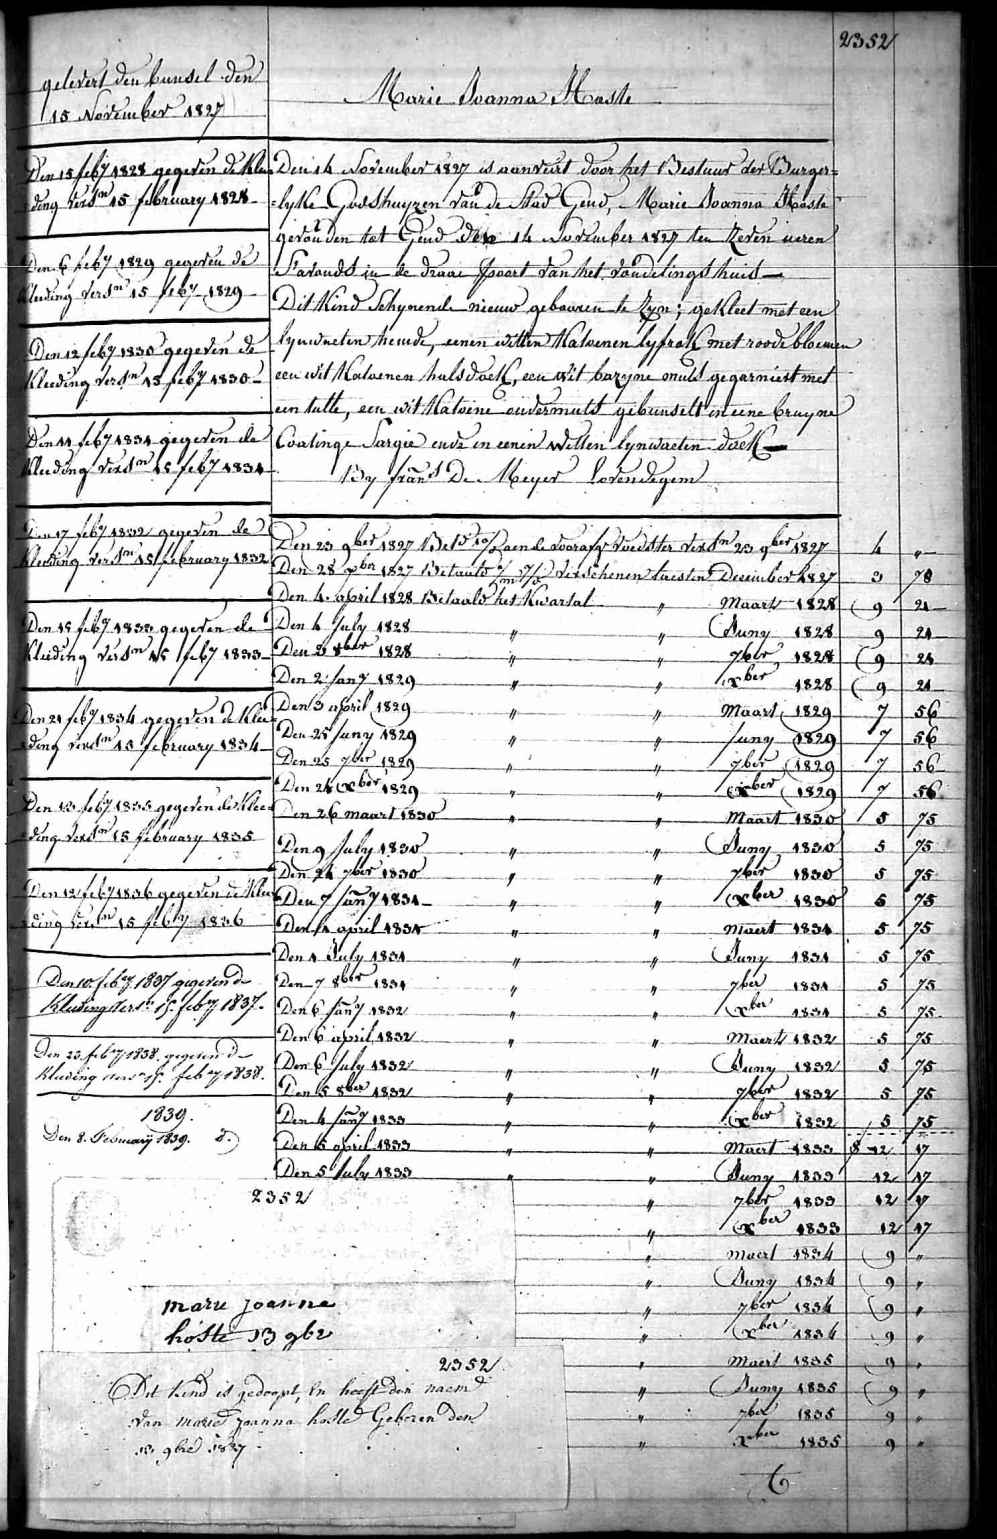 2352
gelevert den bunsel den
15 November 1827
Marie Joanna Hoste
Den 15 feby 1828 gegeven de Klee
ding versn 15 february 1828
Den 6 feby 1829 gegeven de
Kleeding versn 15 feby 1829
Den 12 feby 1830 gegeven de
Kleeding versn 15 feby 1830
Den 14 feby 1831 gegeven de
Kleeding versn 15 feby 1831
Den 17 feby 1832 gegeven de
Kleeding versn 15 february 1832
Den 15 feby 1833 gegeven de
Kleeding versn 15 feby 1833
Den 21 feby 1834 gegeven de Klee
ding versn 15 february 1834
Den 13 feby 1835 gegeven de Klee
ding versn 15 february 1835
Den 12 feby 1836 gegeven de Klee
ding versn 15 feby 1836
Den 10 feby 1837 gegeven d
Kleeding versn 15 feby 1837
Den 23 feby 1838 gegeven d
Kleeding versn 15 feby 1838
1839.
Den 8 February 1839.
Den 14 November 1827 is aanveirt door het Bestuur der Burger=
=lyke Godshuyzen van de Stad Gend, Marie Joanna Hoste
gevonden tot Gend den 14 November 1827 ten zeven ueren
s'avonds in de draai poort van het vondelings huis
Dit Kind Schynende nieuw gebooren te zyn; gekleet met een
lynwaeten hemde, eenen witten Katoenen lyfrok met roode bloemen
een wit Katoenen halsdoek, een wit bazyne muts gegarniert met
een tulle, een wit Katoene ondermuts gebunselt in eene bruyne
Coatinge Sargie ende in eenen witten lynwaeten doek
By frans De Meyer Lovendegem
Den 23 9ber 1827 voedster versn 23 9ber 1827 4 "
Den 28 xber 1827 Betaald verschenen laesten December 1827 3 78
Den 4 april 1828 Betaald het Kwartal " Maart 1828 9 21
Den 4 July 1828 " " Juny 1828 9 21
Den 3 8ber 1828 " " 7ber 1828 9 21
Den 2 Jany 1829 " " xber 1828 9 21
Den 3 april 1829 " " Maart 1829 7 56
Den 25 Juny 1829 " " Juny 1829 7 56
Den 25 7ber 1829 " " 7ber 1829 7 56
Den 24 xber 1829 " " xber 1829 7 56
Den 26 maart 1830 " " Maart 1830 5 75
Den 9 July 1830 " " Juny 1830 5 75
Den 24 7ber 1830 " " 7ber 1830 5 75
Den 7 Jany 1831 " " xber 1830 5 75
Den 4 april 1831 " " Maert 1831 5 75
Den 1 July 1831 " " Juny 1831 5 75
Den 7 8ber 1831 " " 7ber 1831 5 75
Den 6 Jany 1832 " " xber 1831 5 75
Den 6 april 1832 " " Maert 1832 5 75
Den 6 July 1832 " " Juny 1832 5 75
Den 5 8ber 1832 " " 7ber 1832 5 75
Den 4 Jany 1833 " " xber 1832 5 75
Den 5 april 1833 " " Maert 1833 12 17
Den 5 July 1833 " " Juny 1833 12 17
" 7ber 1833 12 17
" xber 1833 12 17
" Maert 1834 9 "
" Juny 1834 9 "
" 7ber 1834 9 "
" xber 1834 9 "
" Maert 1835 9 "
" Juny 1835 9 "
" 7ber 1835 9 "
" xber 1835 9 "
2352
marie joanne
hoste 13 9bre
2352
Dit kind is gedoopt, en heeft den naem
van marie joanna hoste Geboren den
13 9bre 1827